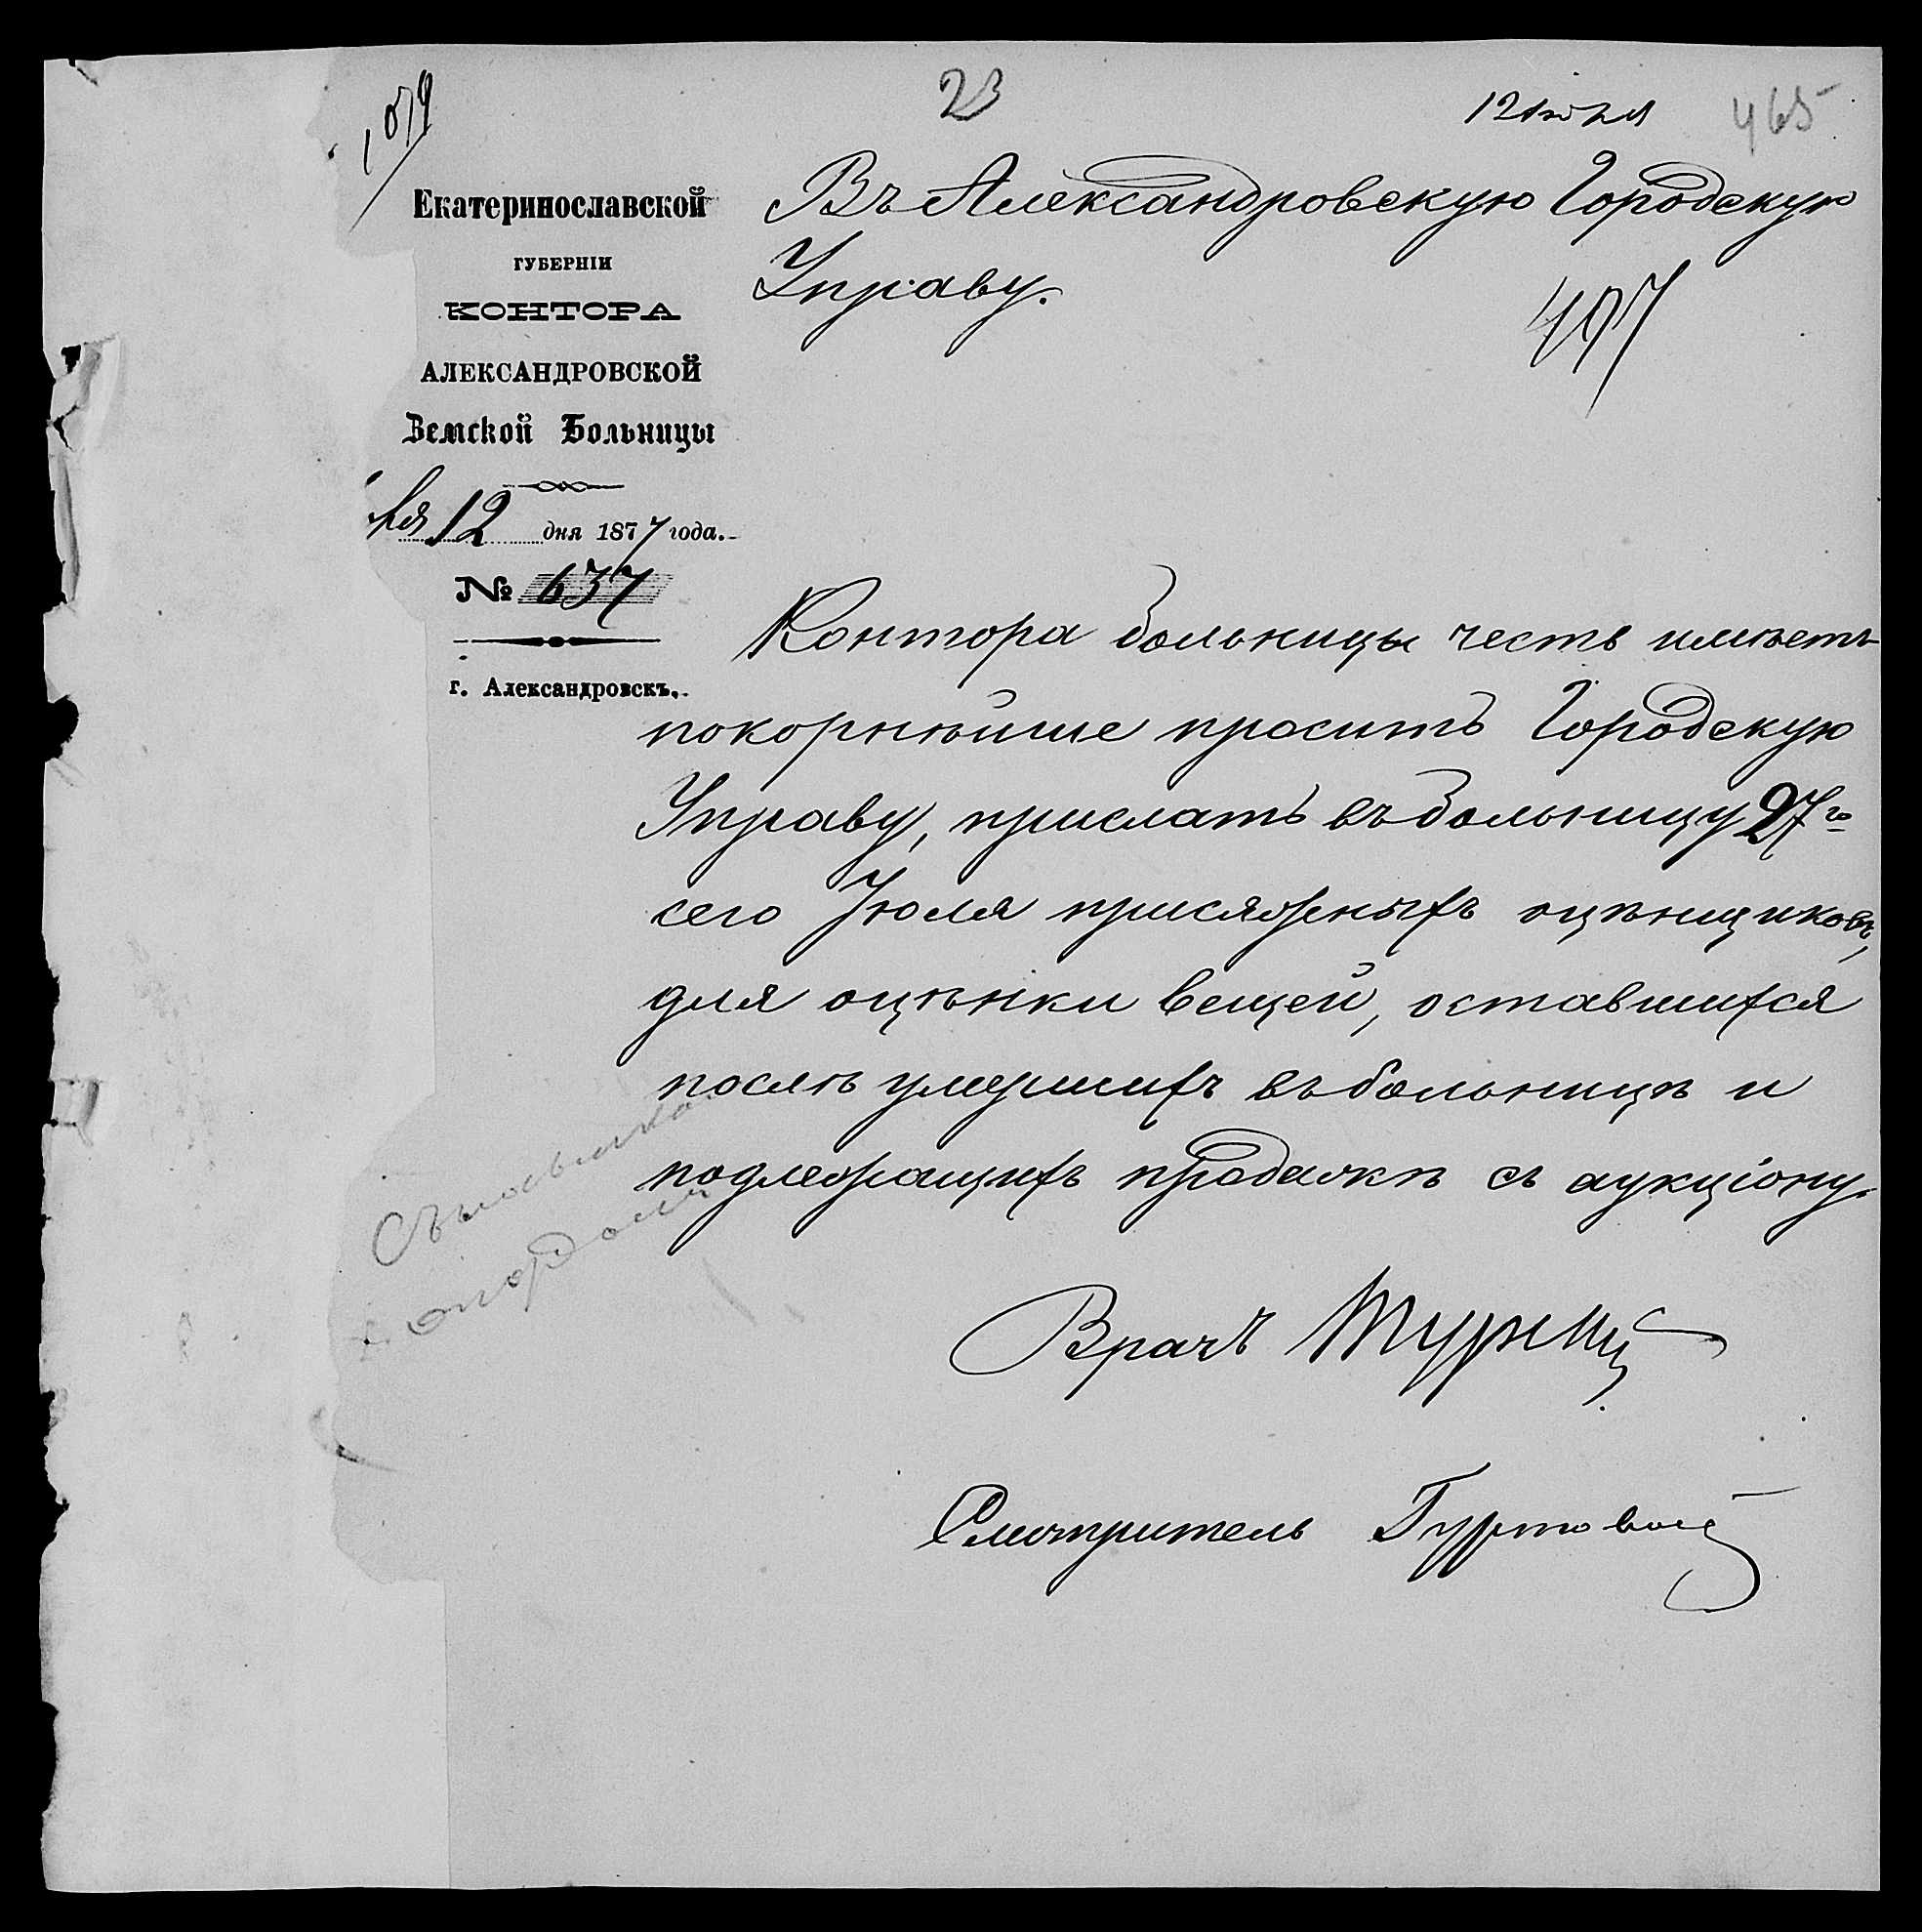 1079
23
12 июля
465
Екатеринославской
ГУБЕРНІИ
КОНТОРА
АЛЕКСАНДРОВСКОЙ
Земской Больницы
ля 12 дня 1877 года.
№ 637
г. Александровскъ.
Въ Александровскую Городскую
Управу.
497
Контора больницы честь имѣетъ
покорнѣйше проситъ Городскую
Управу, прислать въ больницу 27го
сего Іюля присяжныхъ оцѣнщиковъ,
для оцѣнки вещей, оставшихся
послѣ умершихъ въ больницѣ и
подлежащихъ продажѣ съ аукціону.
Врачъ
Смотритель Гуртовой